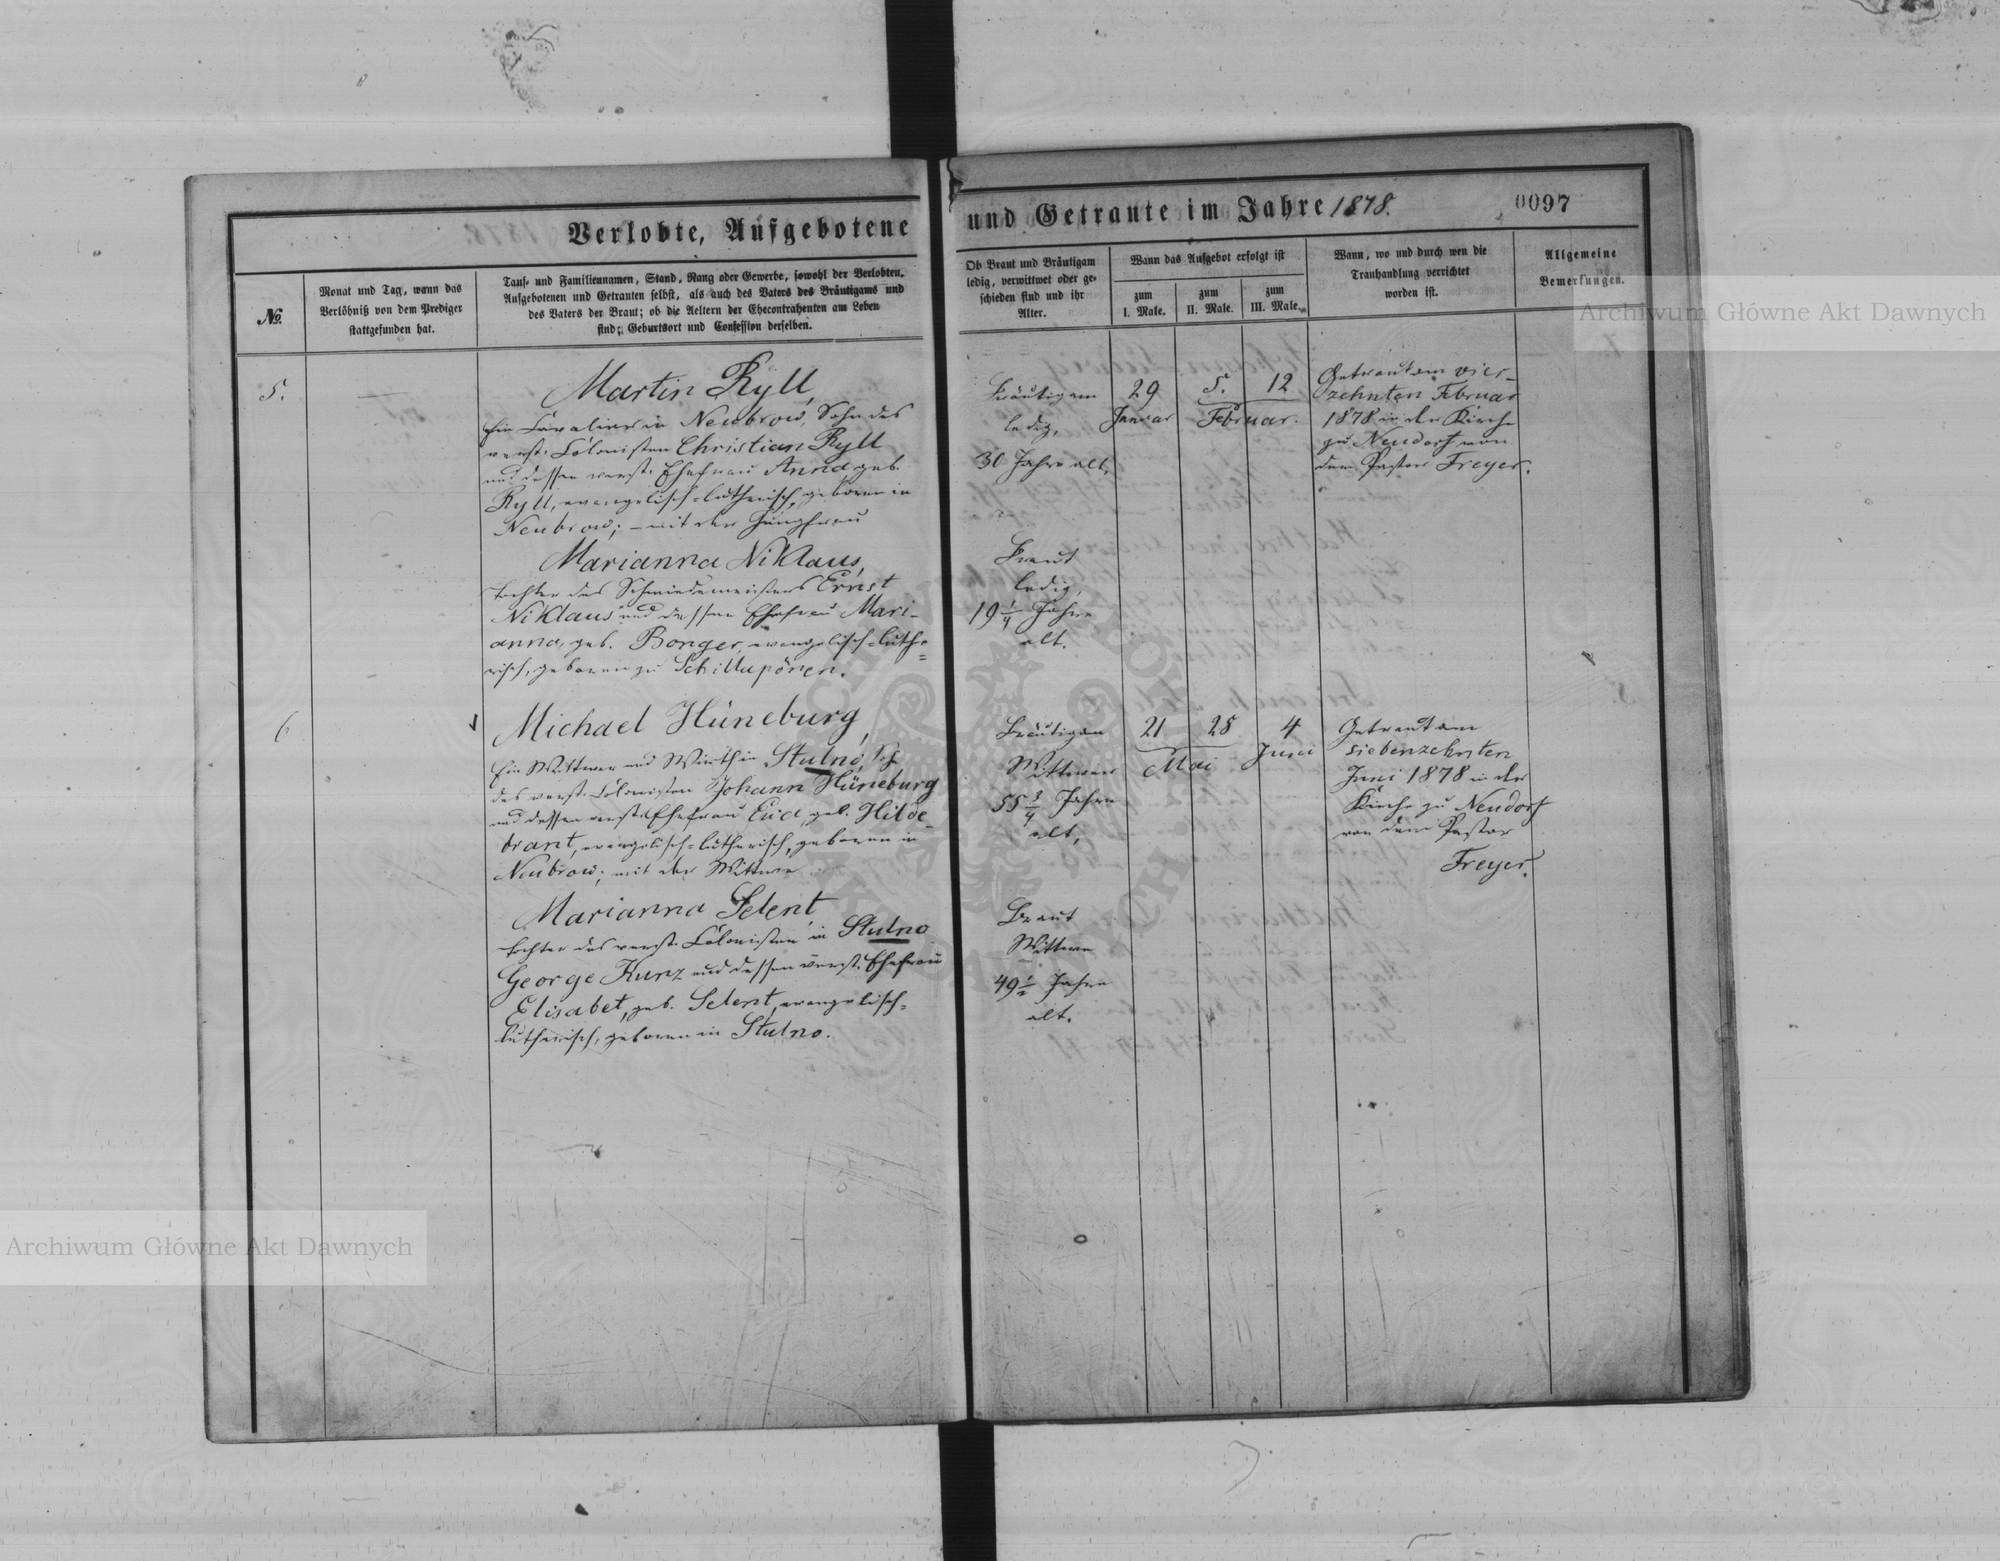 Verlobte, Aufgebotene und Getraute im Jahre 1878.
0097
№
Monat und Tag, wann das
Verlöbniß von dem Prediger
stattgefunden hat.
Tauf- und Familiennamen, Stand, Rang oder Gewerbe, sowohl der Verlobten,
Aufgebotenen und Getrauten selbst, als auch des Vaters des Bräutigams und
des Vaters der Braut; ob die Aeltern der Ehecontrahenten am Leben
sind; Geburtsort und Confession derselben.
Ob Braut und Bräutigam
ledig, verwittwet oder ge-
schieden sind und ihr
Alter.
Wann das Aufgebot erfolgt ist
zum
I. Male.
zum
II. Male.
zum
III. Male.
Wann, wo und durch wen die
Trauhandlung verrichtet
worden ist.
Allgemeine
Bemerkungen.
5.
Martin Ryll,
in Neubrow, Sohn des
verst. Colonisten Christian Ryll
und dessen verst. Ehefrau Anna geb.
Ryll, evangelisch-lutherisch, geboren in
Neubrow; – mit der Jungfrau
Marianna Niklaus,
Tochter des Schmiedemeisters Ernst
Niklaus und dessen Ehefrau Mari-
anna, geb. Bonger, evangelisch-luthe=
risch, geboren zu Schillupönen.
Bräutigam
ledig,
30 Jahre alt,
Braut
ledig,
19 1/4 Jahre
alt.
29
Januar
5. 12
Februar.
Getraut am vier-
zehnten Februar
1878 in der Kirche
zu Neudorf von
dem Pastor Freyer.
6
Michael Hüneburg,
Ein Wittwer und Wirth in Stulno,
des verst. Colonisten Johann Hüneburg
und dessen verst. Ehefrau Eva, geb. Hilde-
brant, evangelisch-lutherisch, geboren in
Neubrow; mit der Wittwe
Marianna Selent
Tochter des verst. Colonisten in Stulno
George Kunz und dessen verst. Ehefrau
Elisabet, geb. Selent, evangelisch-
lutherisch, geboren in Stulno.
Bräutigam
Wittwer
55 3/4 Jahre
alt,
Braut
Wittwe
49 1/2 Jahre
alt.
21 28
Mai
4
Juni
Getraut am
siebenzehnten
Juni 1878 in der
Kirche zu Neudorf
von dem Pastor
Freyer.
Archiwum Główne Akt Dawnych
Archiwum Główne Akt Dawnych